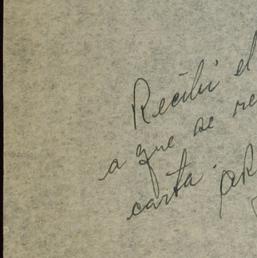 Recibí el
a que se re
carta.